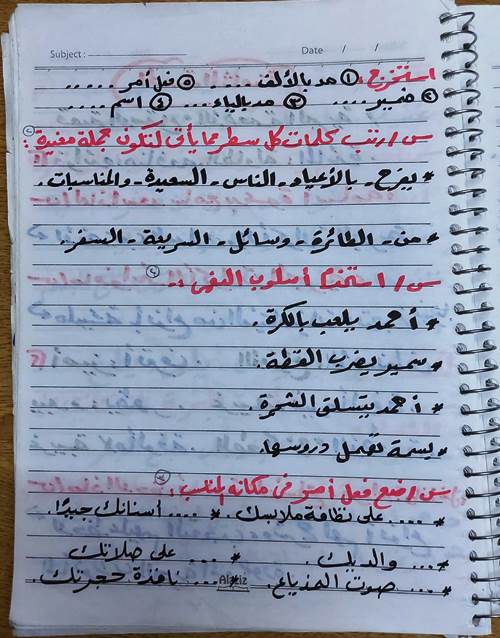 Subject : Date / /
استخرج : ① مد بالألف .... ⑤ فعل أمر .....
② ضمير .... ③ مد بالياء ... ④ اسم ....
س/ رتب كلمات كل سطر مما يأتى لتكون جملة مفيدة :
* يفرح - بالأعياد - الناس - السعيدة - والمناسبات .
* من - الطائرة - وسائل - السريعة - السفر .
س/ استخدم أسلوب النهى :-
* أحمد يلعب بالكرة .
* سمير يضرب القطة .
* أحمد يتسلق الشجرة .
* بسمة تهمل دروسها .
س/ ضع فعل أمر فى مكانه المناسب :
* .... على نظافة ملابسك . * .... أسنانك جيدًا .
* ... والديك . * ... على صلاتك
* .... صوت المذياع . * .... نافذة حجرتك .